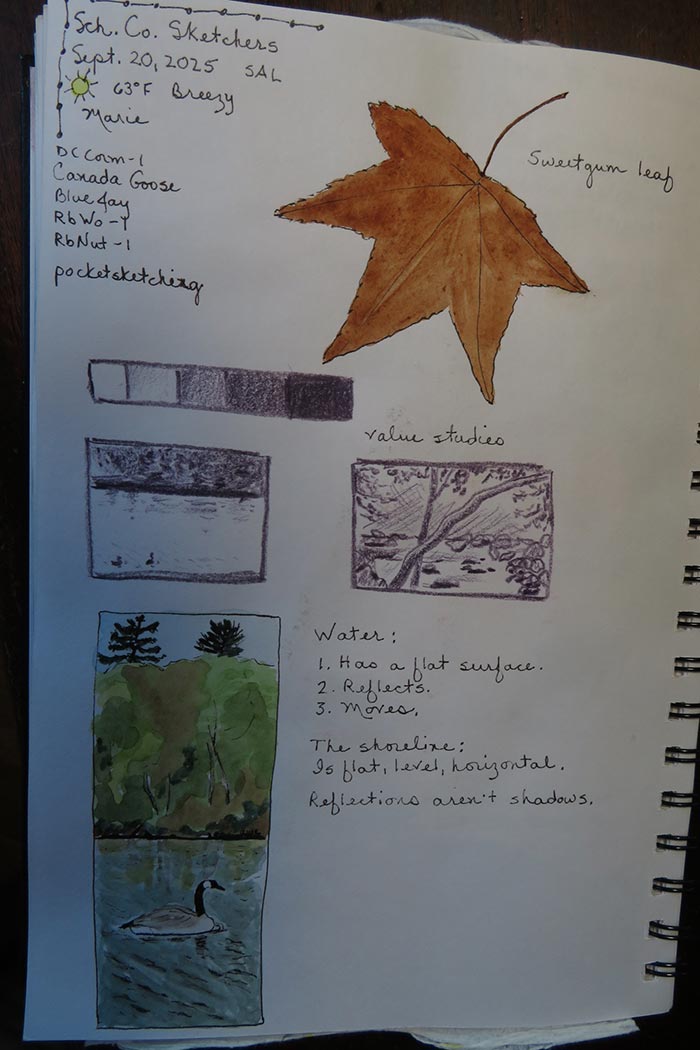 Sch. Co. Sketchers
Sept. 20, 2025 SAL
63°F Breezy
Marie
DCCorm-1
Canada Goose
Blue Jay
RbWo-Y
RbNut-1
pocketsketching
Sweetgum leaf
value studies
Water:
1. Has a flat surface.
2. Reflects.
3. Moves.
The shoreline:
Is flat, level, horizontal.
Reflections aren't shadows.